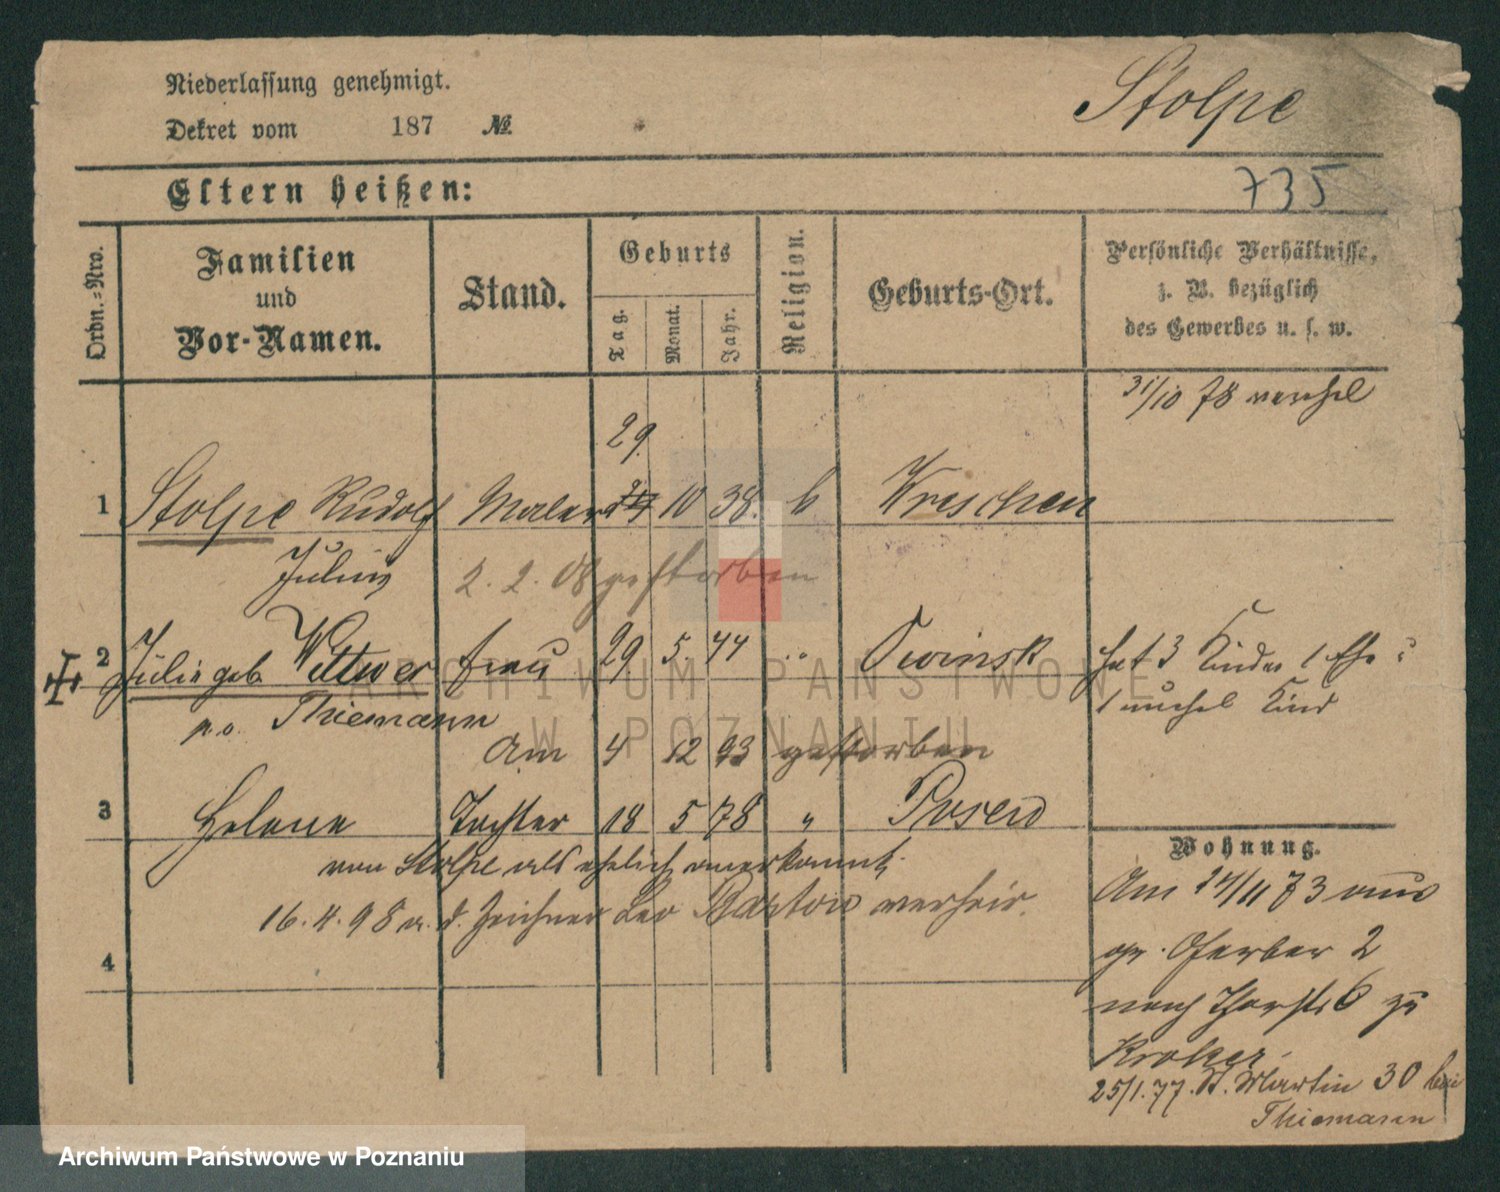 Niederlassung genehmigt.
Stolpe
Dekret vom 187 №
Eltern heißen:
735
Ordn.-Nro.
Familien und Vor-Namen.
Stand.
Geburts
Tag.
Monat.
Jahr.
Religion.
Geburts-Ort.
Persönliche Verhältnisse,
z. B. bezüglich
des Gewerbes u. s. w.
31/10 78
29.
1 Stolpe Rudolf Maler 10 38. Wreschen
Julius 2. 2. 08 gestorben
2 Julie geb Wittwer Frau 29 5. 44 " Owinsk hat 3 Kinder 1 Ehe
p.o. Thiemann 1 Kind
Am 4 12 93 gestorben
3 Helene Tochter 18 5 78 " Posen
von Stolpe als ehelich anerkannt.
16. 4. 98 m. d. Zeichner Leo Bartow verheir.
4
Wohnung.
Am 24/11 73 aus
gr. Gerber 2
nach Thorstr 6 zu
25/1. 77. St. Martin 30 bei
Thiemann
ARCHIWUM PAŃSTWOWE
W POZNANIU
Archiwum Państwowe w Poznaniu